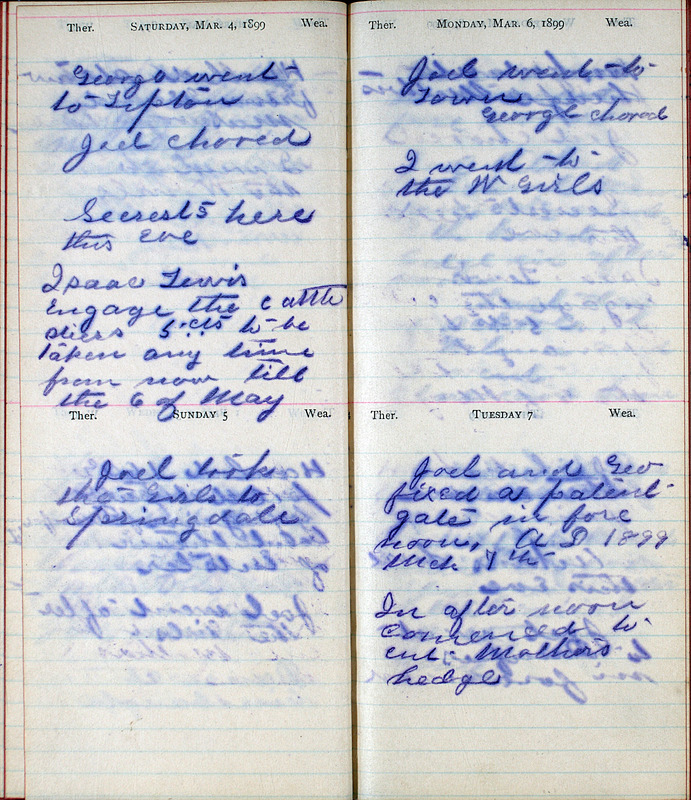 Ther. SATURDAY, MAR. 4, 1899 Wea.
George went
to Tipton
Joel chored
Secrests here
this eve
Isaac Lewis
engage the cattle
5 cts to be
taken any time
from now till
the 6 of May
Ther. SUNDAY 5 Wea.
Joel took
the Girls to
Springdale
Ther. MONDAY, MAR. 6, 1899 Wea.
Joel went to
Town
George chored
I went to
the W Girls
Ther. TUESDAY 7 Wea.
Joel and Geo
fixed a patent
gate in fore
noon, A D 1899
Mch 7th
In after noon
comenced to
cut Mothers
hedge